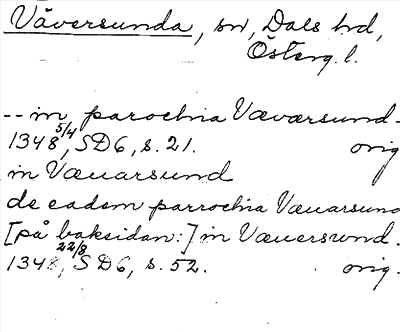 Väversunda, sn, Dals hd,
Österg. l.
-- in parochia Væværsund-
1348 5/4, SD6, s. 21. orig
in Væuarsund
de eadem parrochia Væuarsund
[på baksidan:] in Væuersund.
1348 22/8, SD6, s. 52. orig.